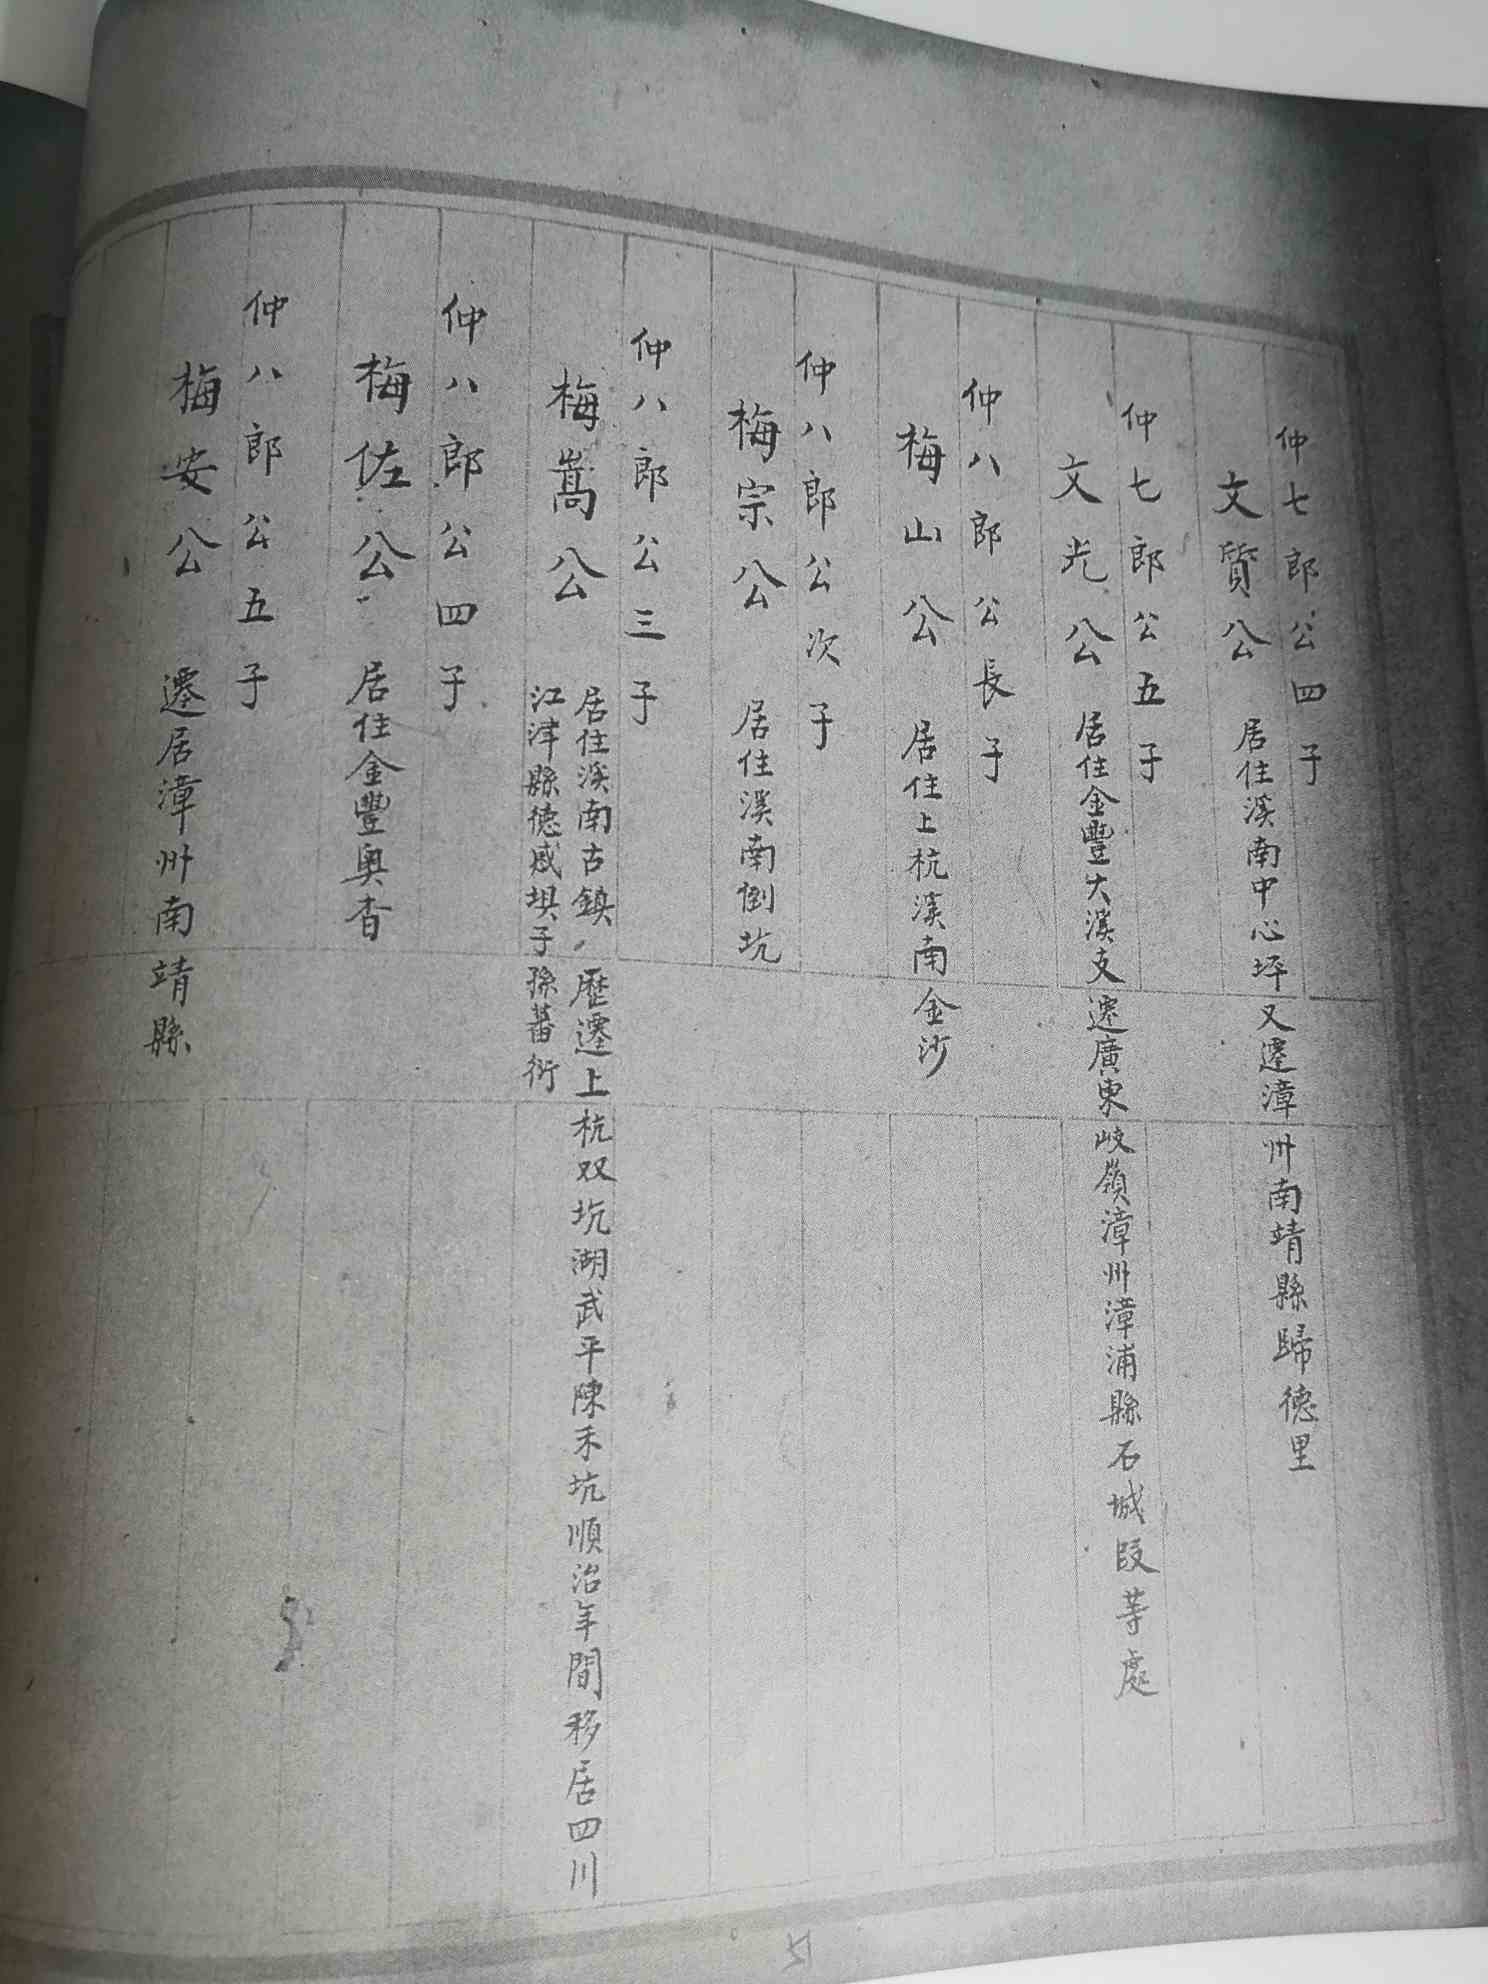 仲七郎公四子
文質公 居住溪南中心坪又遷漳州南靖縣歸德里
仲七郎公五子
文光公 居住金豐大溪支遷廣東岐嶺漳州漳浦縣石城段等處
仲八郎公長子
梅山公 居住上杭溪南金沙
仲八郎公次子
梅宗公 居住溪南倒坑
仲八郎公三子
梅嵩公 居住溪南古鎮,歷遷上杭双坑湖武平陳禾坑順治年間移居四川
江津縣德感坝子孫蕃衍
仲八郎公四子
梅佐公 居住金豐奧杳
仲八郎公五子
梅安公 遷居漳州南靖縣